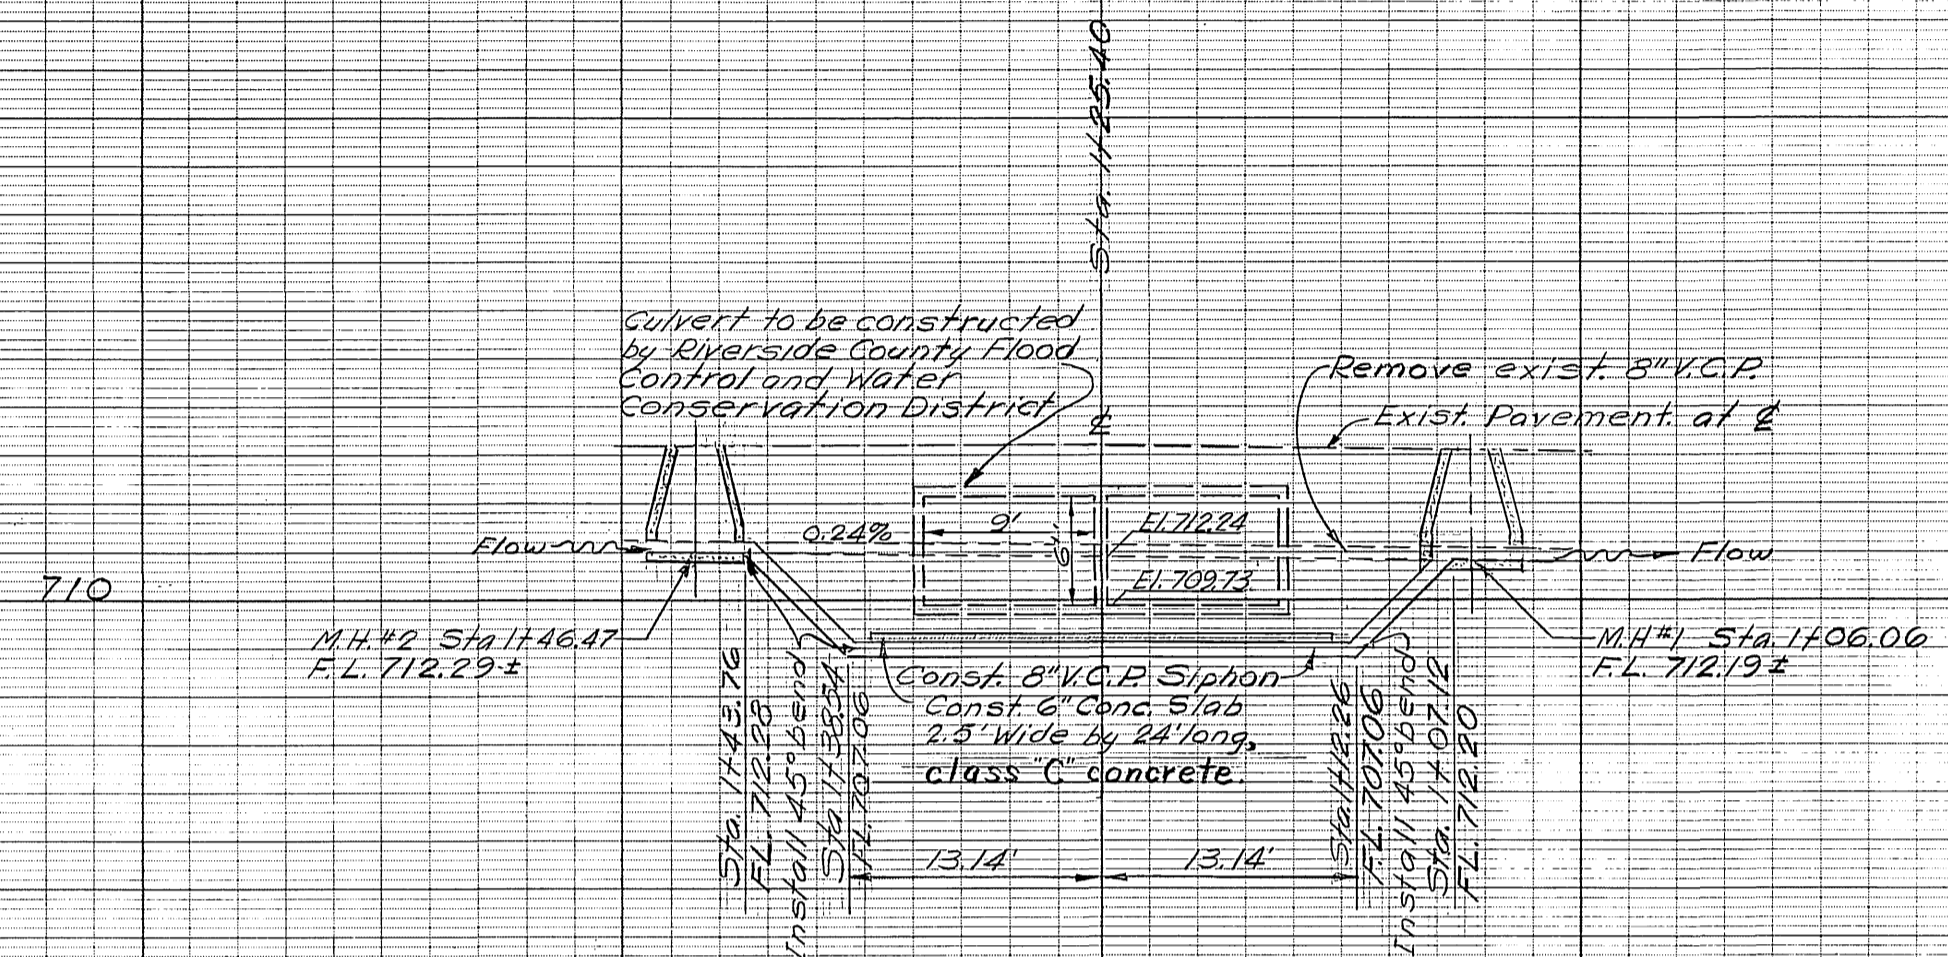 Sta. 1+25.40
Culvert to be constructed
by Riverside County Flood
Control and Water
Conservation District
Remove exist. 8" V.C.P.
Exist. Pavement at ℄
℄
0.24%
9'
6'
El. 712.24
El. 709.73
Flow
Flow
710
M.H. #2 Sta 1+46.47
F.L. 712.29±
M.H #1 Sta. 1+06.06
F.L. 712.19±
Const. 8" V.C.P. Siphon
Const. 6" Conc. Slab
2.5' Wide by 24' long,
class "C" concrete.
Sta. 1+43.76
F.L. 712.28
Install 45° bend
Sta. 1+38.54
F.L. 707.06
13.14'
13.14'
Sta. 1+12.26
F.L. 707.06
Install 45° bend
Sta. 1+07.12
F.L. 712.20